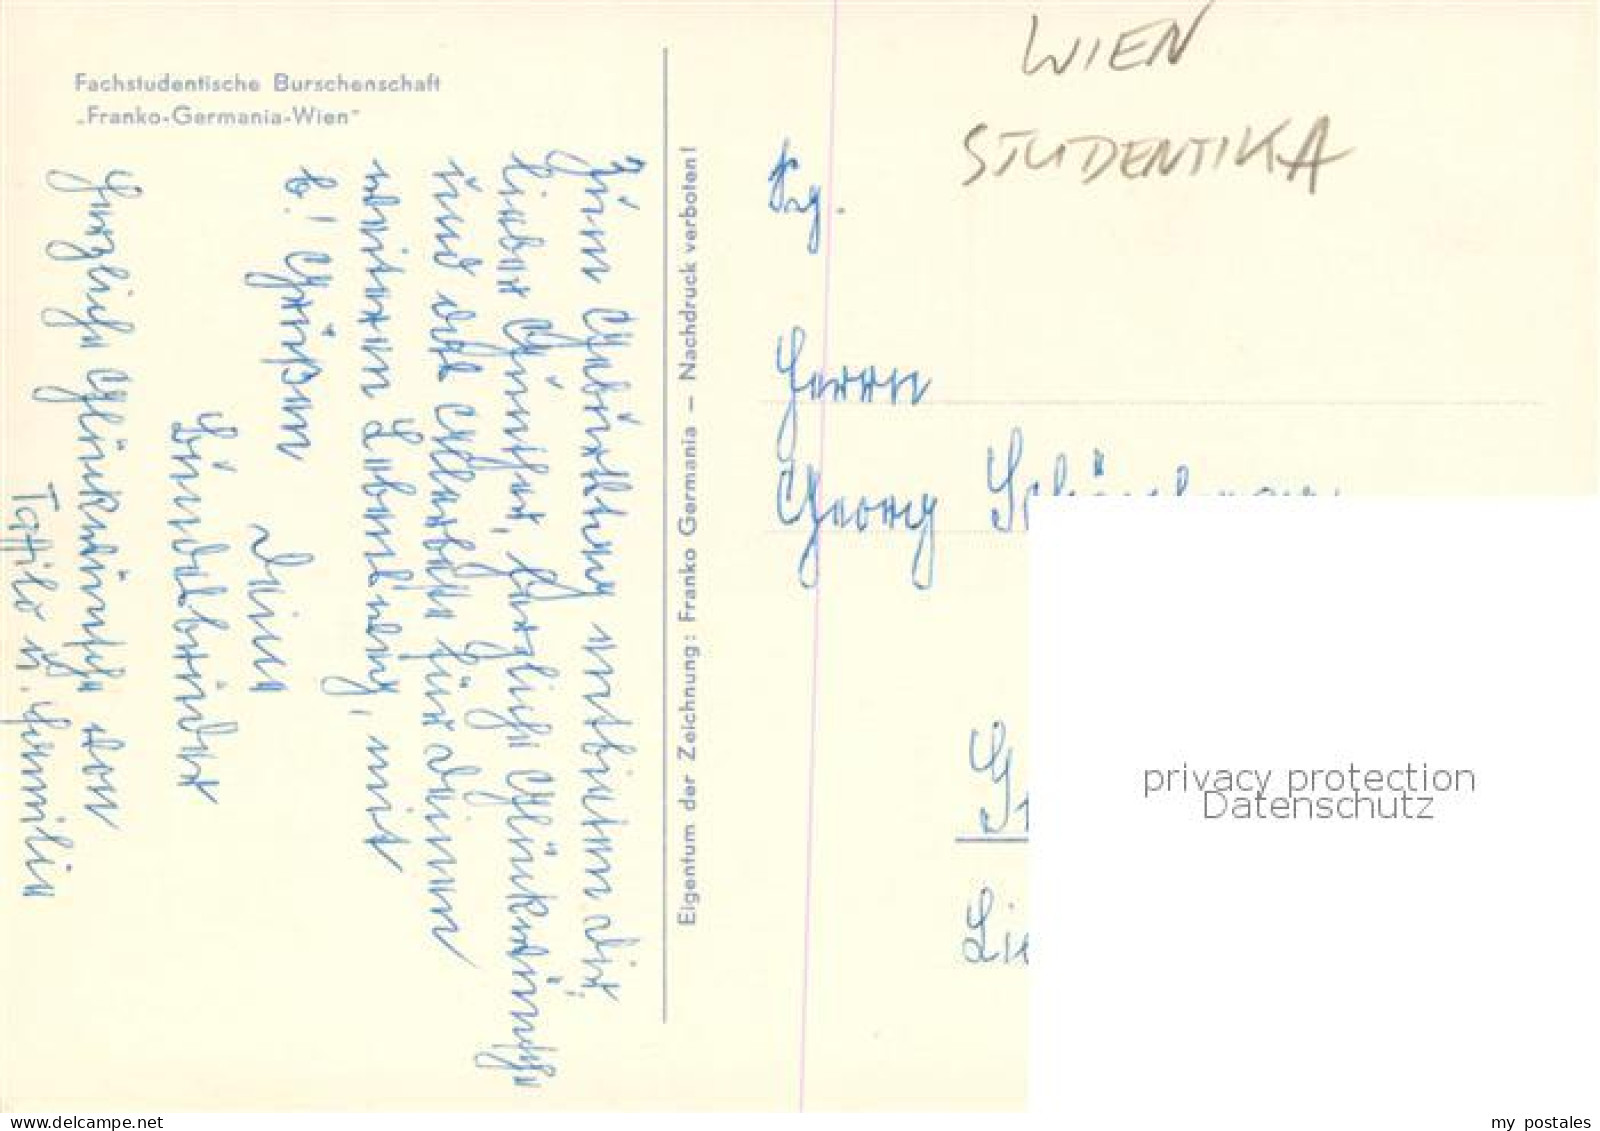 Fachstudentische Burschenschaft
„Franko-Germania-Wien"
Zum Geburtstag entbieten dir,
lieber Günther, herzliche Glückwünsche
und alles Gute für deinen
weiteren Lebensweg, mit
b! Grüßen
Deine
Bundesbrüder
Herzliche Glückwünsche von
Tassilo u. Familie
Eigentum der Zeichnung: Franko Germania — Nachdruck verboten!
WIEN
STUDENTIKA
Herrn
Georg
privacy protection
Datenschutz
www.delcampe.net
my_postales